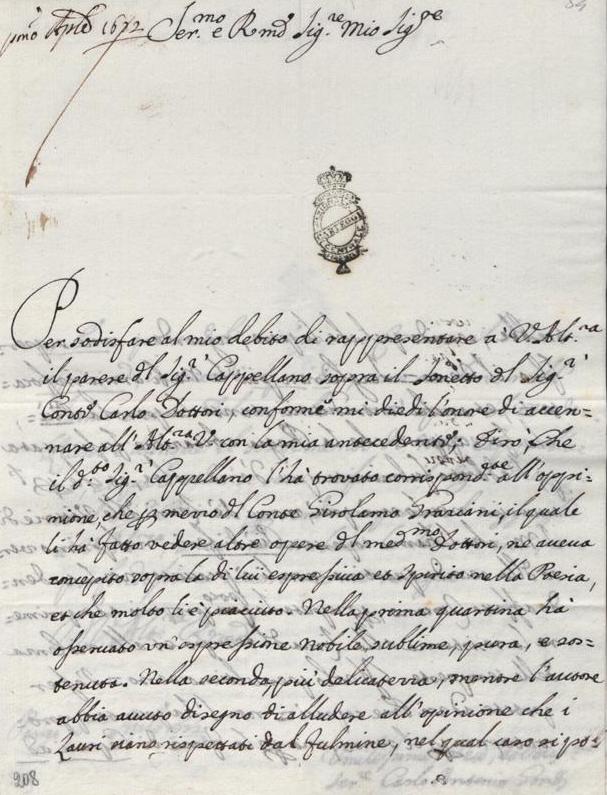 pmo Aprile 1672 Ser.mo e Rmo Sig.re Mio Sig.re
84
ARCHIVIO
CARTEGGI
CENTRALE
Per sodisfare al mio debito di rappresentare à V. Alt.za
il parere del Sig.r Cappellano sopra il sonetto del Sig.r
Conte Carlo Dottori, conforme mi diedi l'onore di accen=
nare all'Alt.za V. con la mia antecedente. Dirò, che
il d.to Sig.r Cappellano l'hà trovato corrispond.te all'oppi=
nione, che p mezzo del Conte Girolamo Graziani, il quale
li hà fatto vedere altre opere del med.mo Dottori, ne aueua
concepito sopra la di lui espressiua et spirito nella Poesia,
et che molto li è piacciuto. Nella prima quartina hà
osseruato un'espressione nobile, sublime, pura, e sos=
tenuta. Nella seconda più delicatezza, mentre l'autore
abbia auuto disegno di alludere all'opinione che i
Lauri siano rispettati dal fulmine, nel qual caso si po=
208